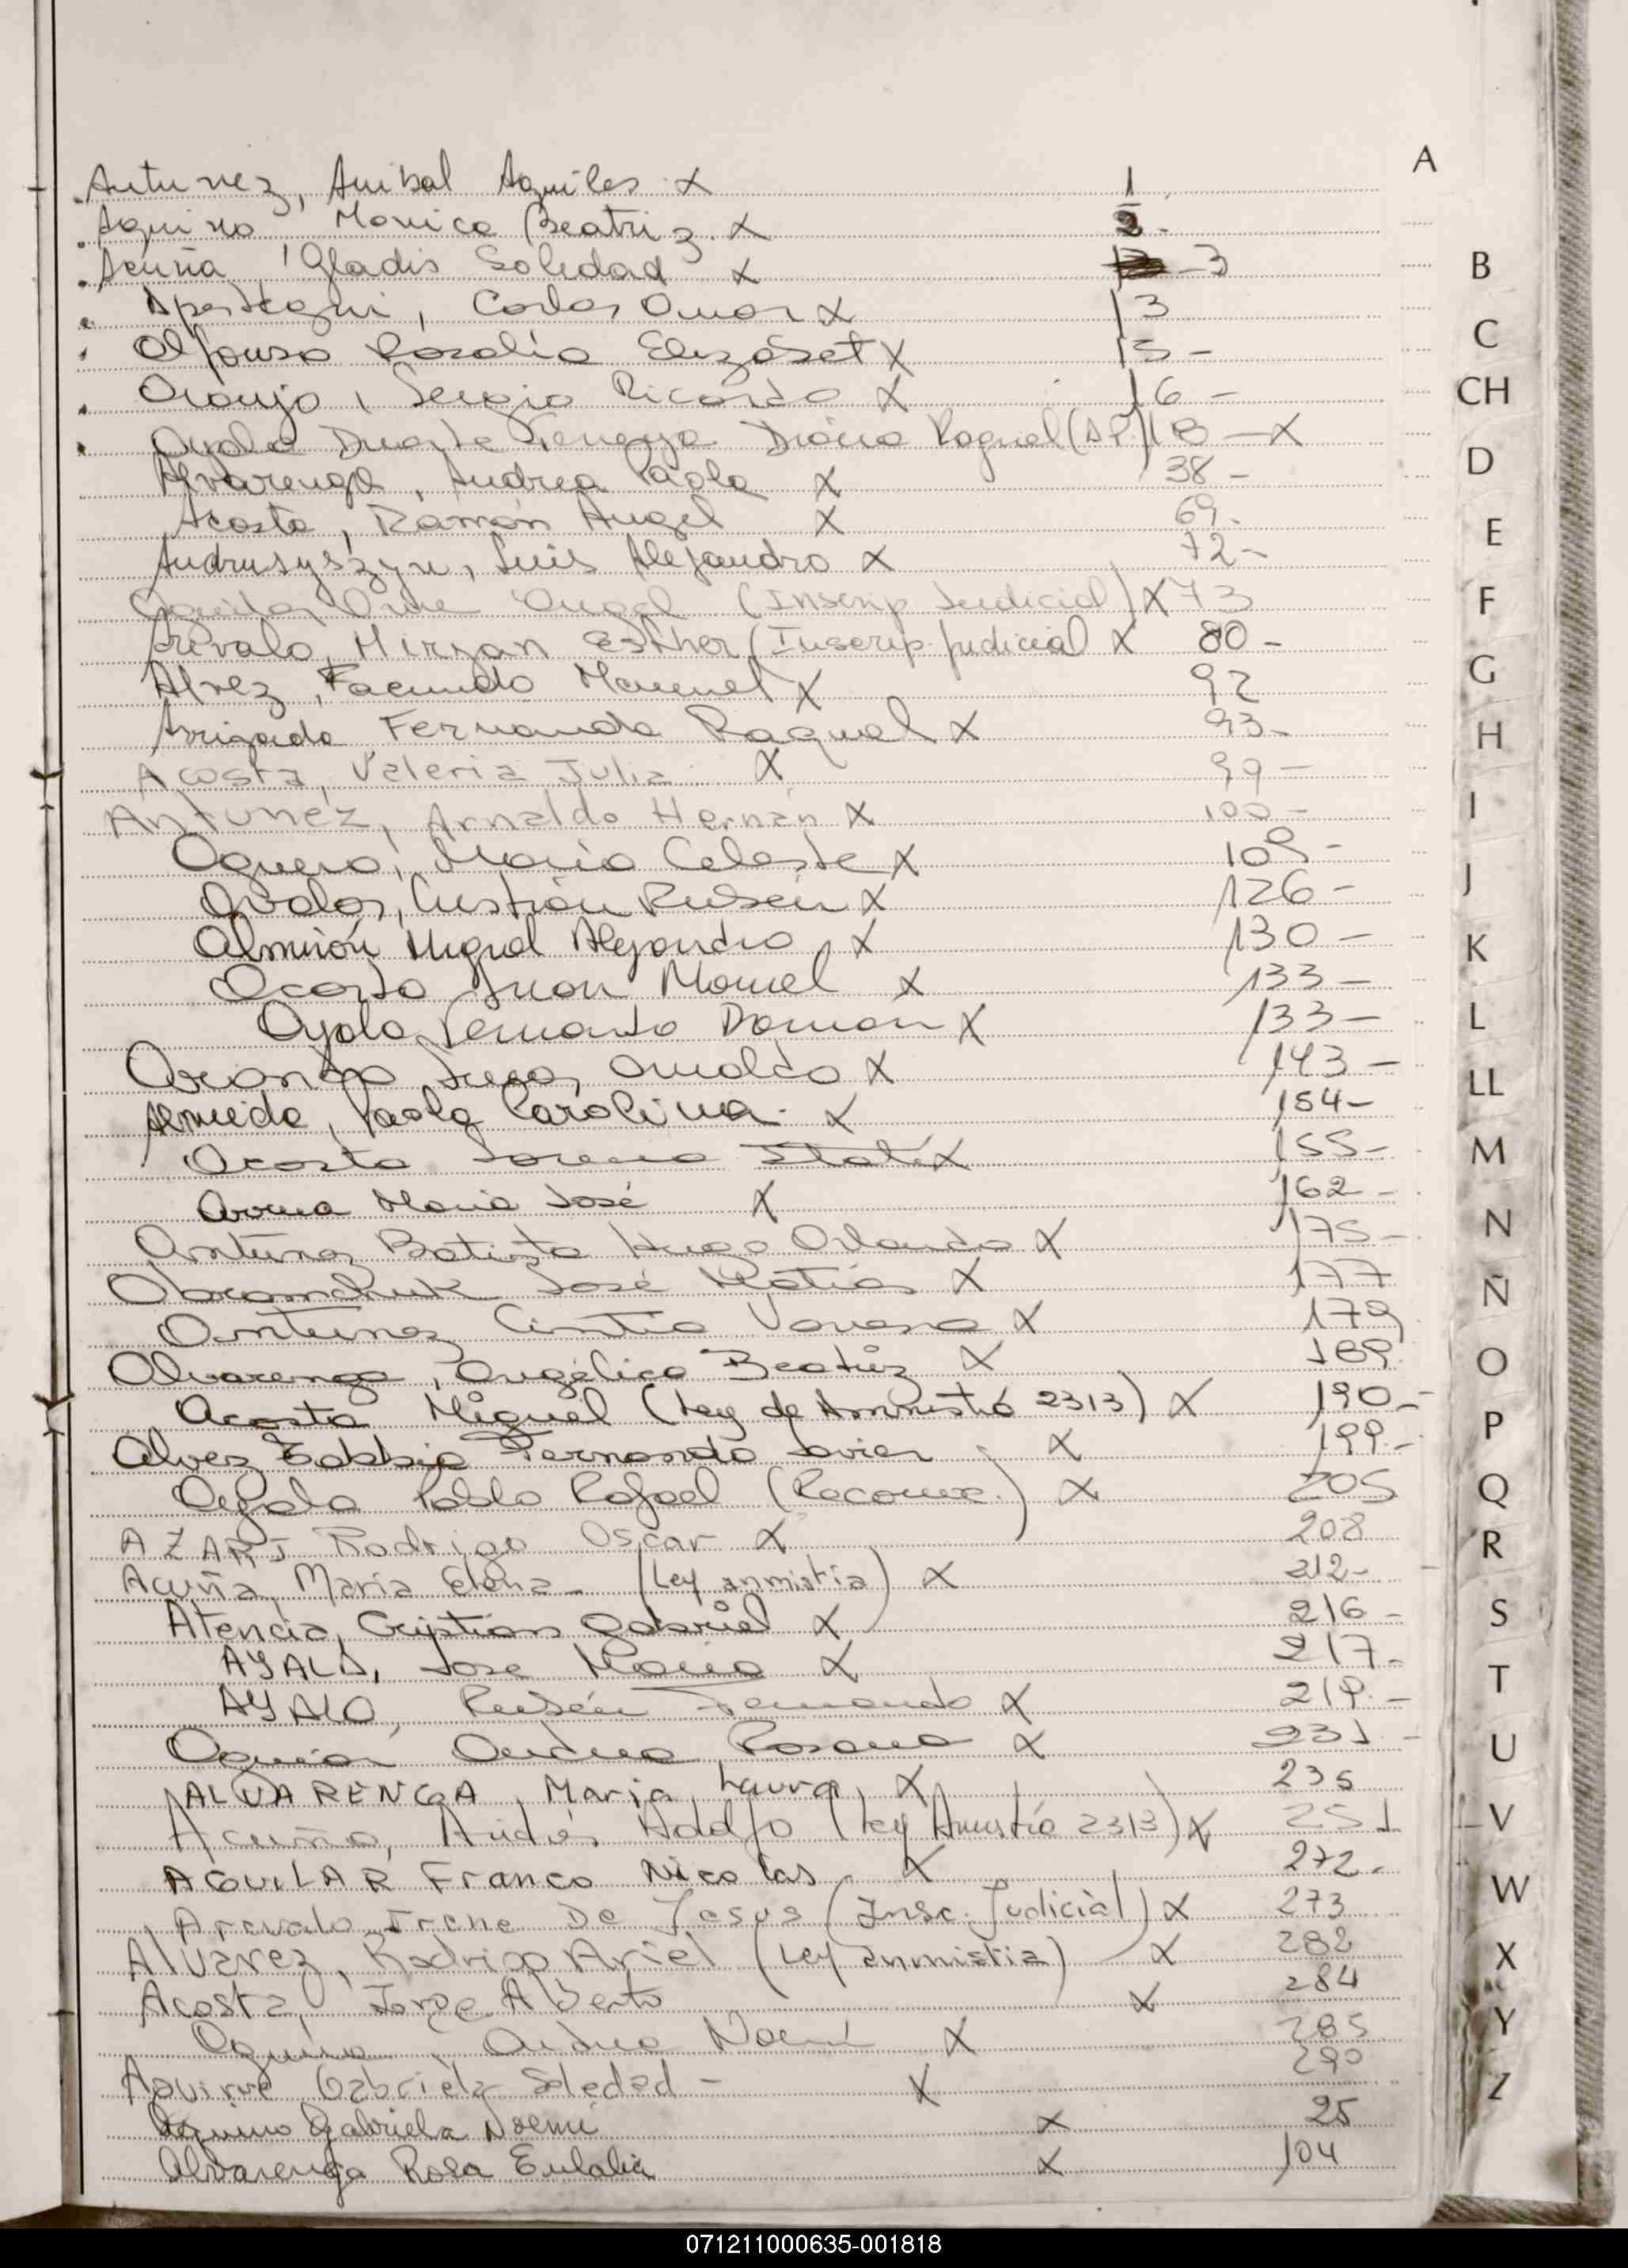 A
Antunez, Anibal Aquiles X 1
Aquino Monica Beatriz. X 2 -
Acuña, Gladis Soledad X 3
Aperstegui, Carlos Omar X 13
Alfonso Rosalia Elizabet X 15 -
Araujo, Sergio Ricardo X 16 -
Ayala Duarte Diana Raquel (AP.) 18 - X
Alvarenga, Andrea Paola X 38 -
Acosta, Ramón Angel X 69.
Andrusyszyn, Luis Alejandro X 72 -
Angel (Inscrip Judicial) X 73
Arévalo, Miryan Esther (Inscrip. judicial X 80 -
Alvez, Facundo Manuel X 92
Fernanda Raquel X 93 -
Acosta, Valeria Julia X 99 -
Antunez, Arnaldo Hernán X 100 -
Aguero, Maria Celeste X 109 -
Avalos, Cristián Rubén X 126 -
Almirón Miguel Alejandro X 130 -
Acosta Juan Manuel X 133 -
Ayala Fernando Damian X 133 -
Arnaldo X 143 -
Almeida, Paola Carolina. X 154 -
Acosta Lorena Itatí X 155 -
Maria José X 162 -
Antunez Batista Hugo Orlando X 175 -
Abramchuk José Matías X 177
Antunez Cintia Vanesa X 179
Alvarenga, Angélica Beatriz X 189.
Acosta Miguel (Ley de Amnistía 2313) X 190. -
Alvez Fernando Javier X 199. -
Ayala Pablo Rafael (Reconoc.) X 205
AZARI Rodrigo Oscar X 208
Acuña, Maria Elena - (Ley anmistia) X 212 -
Atencia, Cristian Gabriel X 216 -
AYALA, Jose Maria X 217 -
AYALA, Rubén Fernando X 219. -
Andrea Rosana X 231 -
ALVARENGA, Maria Laura, X 235
Acuña, Andrés Adolfo (Ley Amnistía 2313) X 251
AGUILAR Franco Nicolas X 272 -
Arevalo Irene De Jesus (Insc. Judicial) X 273
Alvarez, Rodrigo Ariel (Ley anmistia) X 282
Acosta, Jorge Alberto X 284
Aquino, Andrea Noemí X 285
Aguirre Gabriela Soledad - X 290
Aquino Gabriela Noemi X 25
Alvarenga Rosa Eulalia X 104
B
C
CH
D
E
F
G
H
I
J
K
L
LL
M
N
Ñ
O
P
Q
R
S
T
U
V
W
X
Y
Z
071211000635-001818